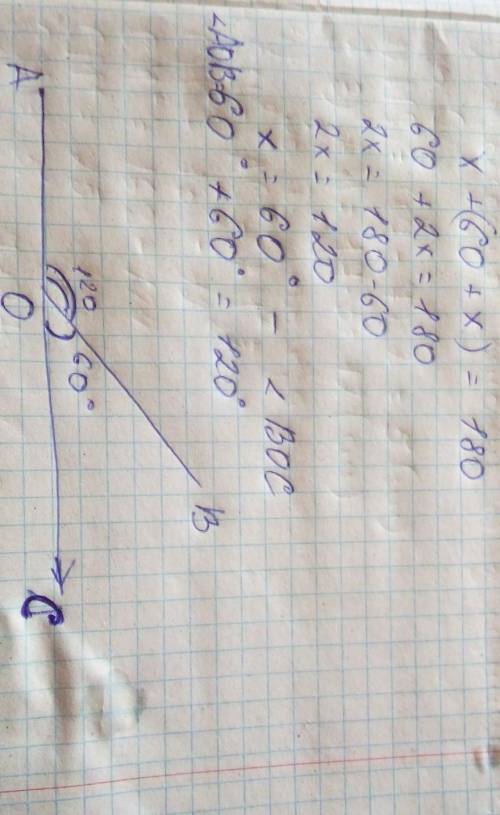 x + (60 + x) = 180
60 + 2x = 180
2x = 180-60
2x = 120
x = 60° - < BOC
<AOB=60° + 60° = 120°
B
120
60°
A
O
C